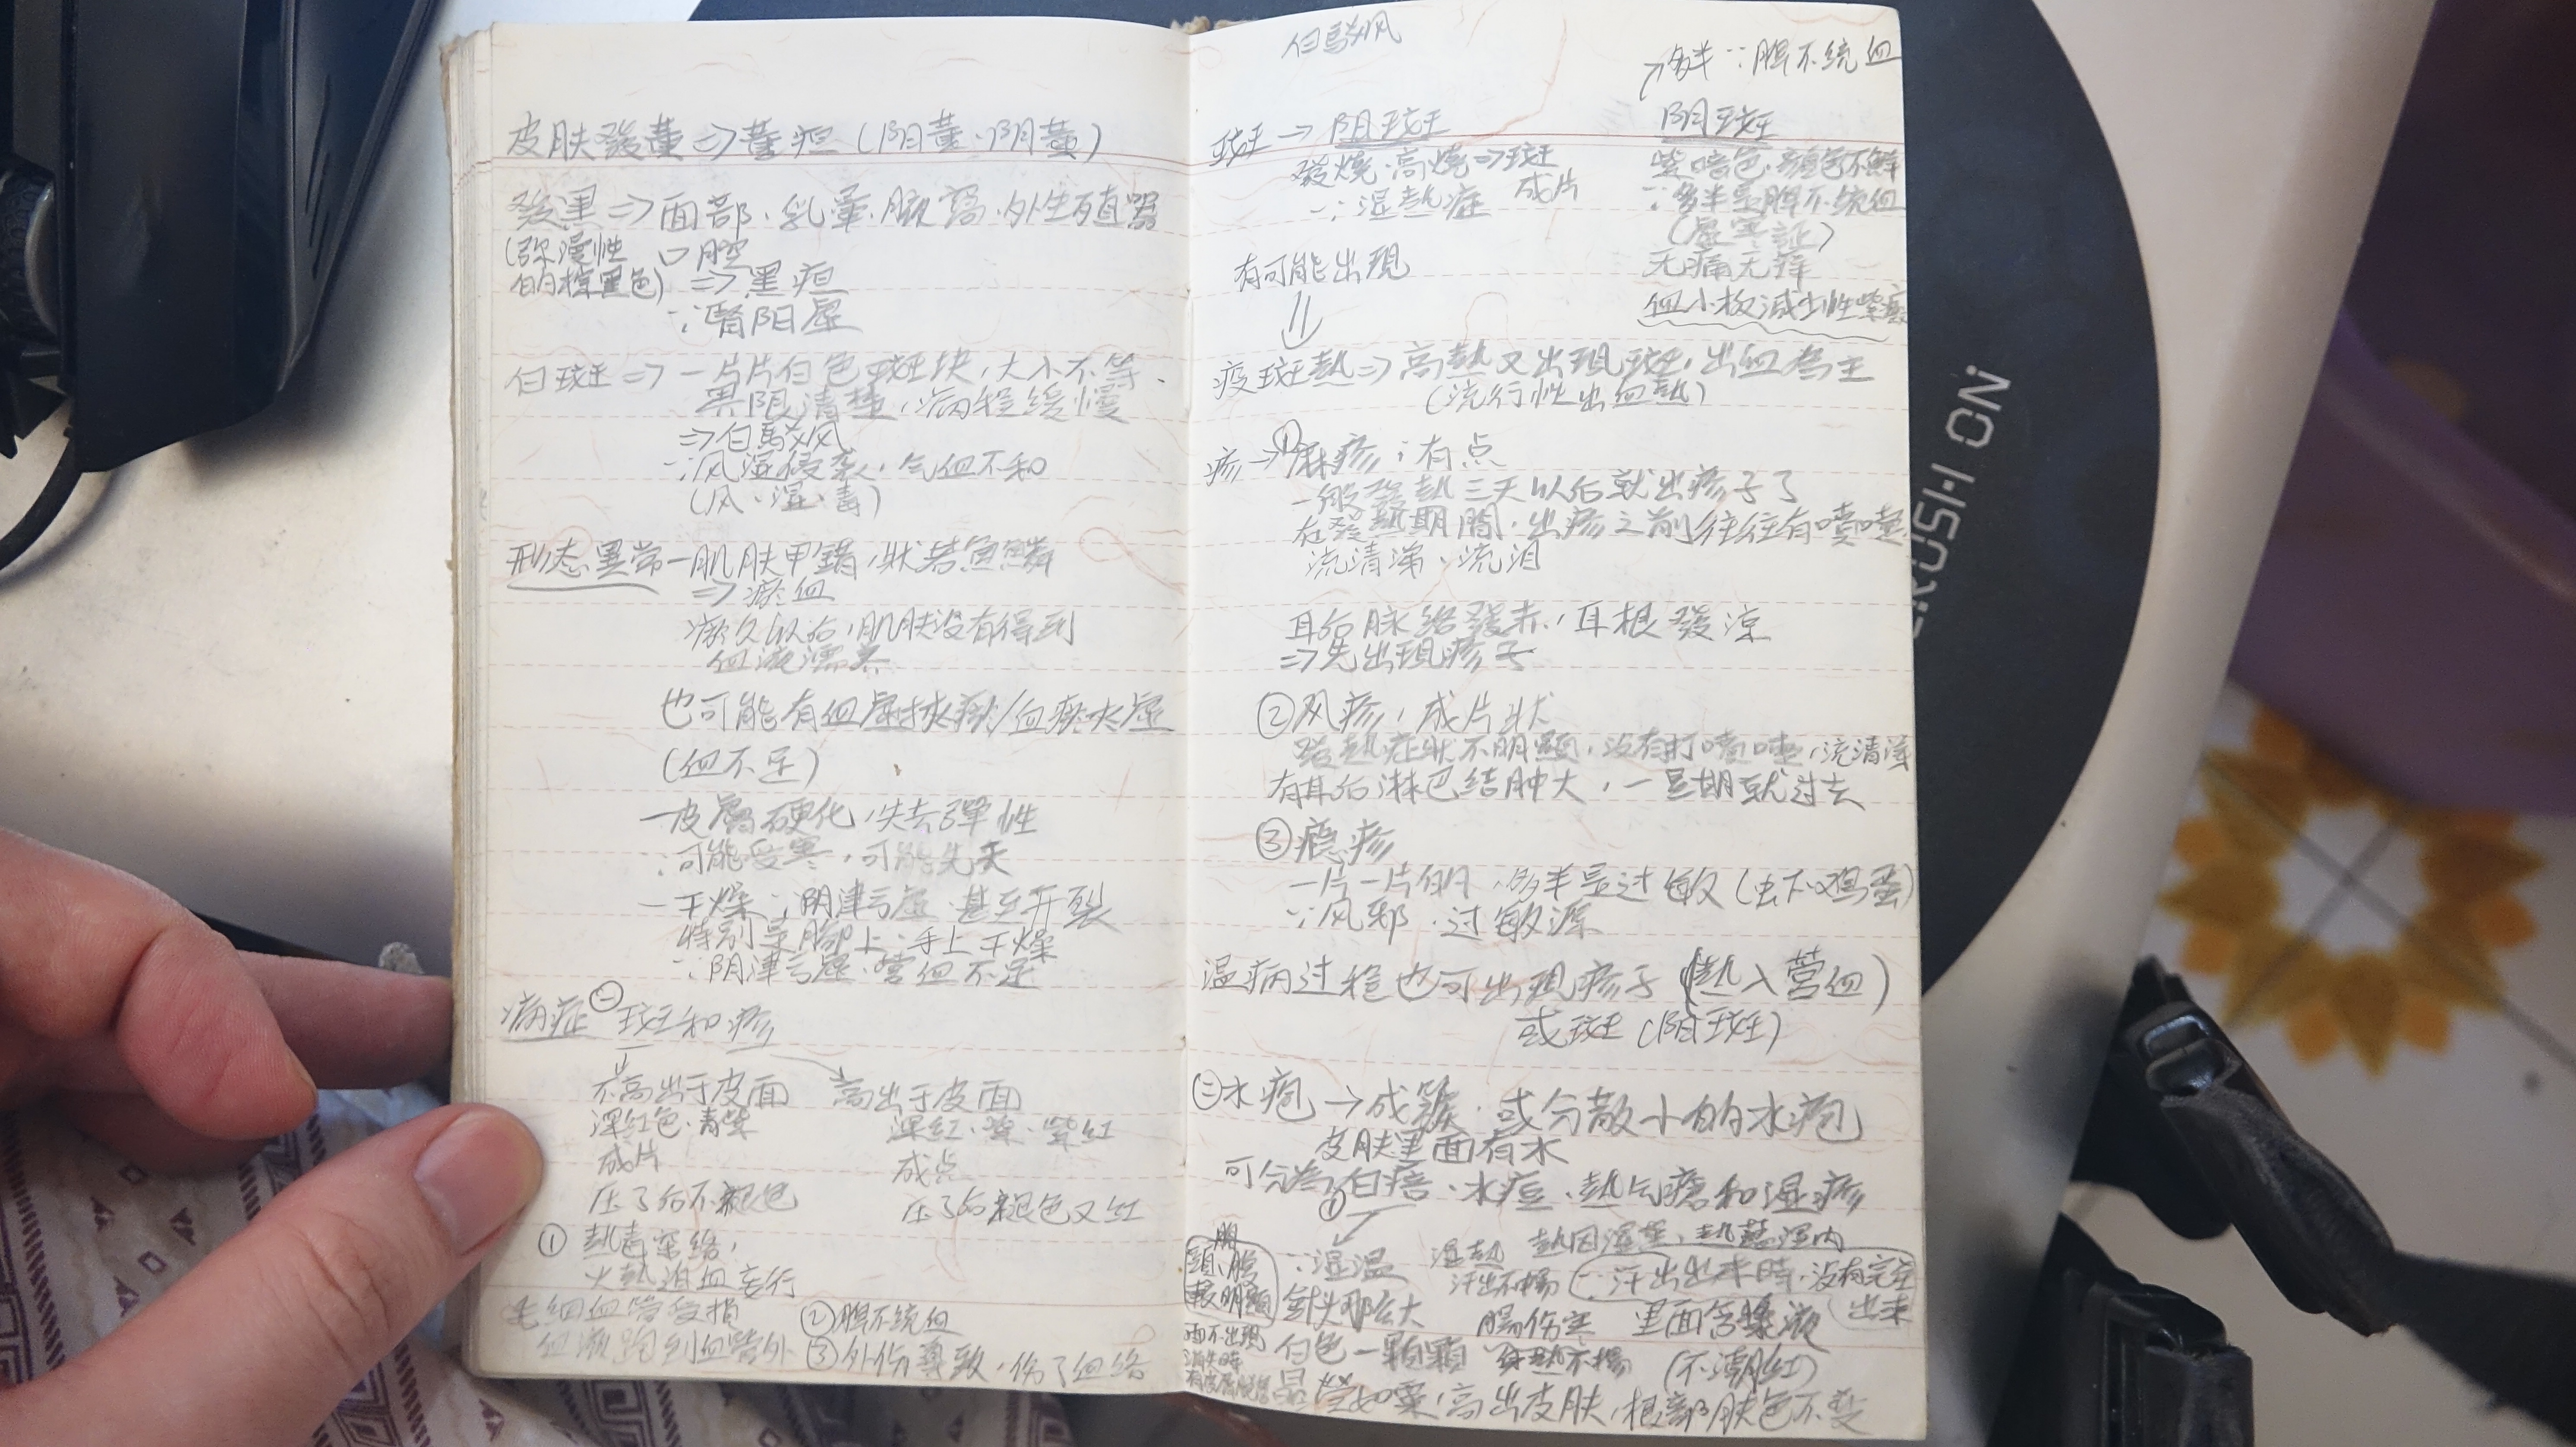 皮肤發黃⇒黃疸(阳黃、阴黃)
發黑⇒面部、乳暈、腋窩、外生殖器
(弥漫性 口腔
的棕黑色) ⇒黑疸
∵腎阳虛
白斑⇒一片片白色斑块,大小不等.
界限清楚,病程緩慢
⇒白駁风
∵风湿侵袭,气血不和
(风、湿、毒)
形态異常—肌肤甲錯,狀若魚鱗
⇒瘀血
瘀久以后,肌肤没有得到
血液濡养
也可能有血虛挟瘀/血瘀挟虛
(血不足)
—皮膚硬化,失去彈性
∵可能受寒,可能先天
—干燥∵阴津亏虛、甚至开裂
特別是腳上、手上干燥
∵阴津亏虛、營血不足
病症 ㊀ 斑和疹
↓
不高出于皮面 高出于皮面
深红色、青紫 深红、紫、紫红
成片 成点
压了后不褪色 压了后褪色又红
① 热毒窜絡,
火热迫血妄行
毛細血管受損 ②脾不統血
血液跑到血管外 ③外伤導致,伤了血络
白駁风
↗多半∵脾不统血
斑→阳斑 阴斑
發燒、高燒⇒斑 紫暗色、顏色不鮮
∵湿熱症 成片 ∵多半是脾不统血
(虛寒証)
有可能出現 无痛无痒
⇓ 血小板減少性紫癜
疫斑热⇒高热又出現斑,出血為主
(流行性出血热)
疹→①麻疹;有点
一般發热三天以后就出疹子了
在發热期間,出疹之前往往有噴嚏
流清涕、流泪
耳后脉络發赤,耳根發凉
⇒先出現疹子
②风疹,成片狀
發热症狀不明顯,没有打噴嚏,流清涕
有耳后淋巴结肿大,一星期就过去
③瘾疹
一片一片的、多半是过敏(虫下、鸡蛋)
∵风邪、过敏源
温病过程也可出現疹子(热入营血)
或斑(阳斑)
㊁水疱→成簇、或分散小的水疱
皮肤里面有水
可分為,白㾦、水痘、热气瘡和湿疹
①
∵湿温 湿热 热因湿 热蒸湿内
胸
頸、脸 汗出不暢 ∵汗出出来時,没有完全
最明顯 針头那么大 腸伤寒 里面含漿液 出来
面不出現 白色一颗颗 不暢 (不潮红)
消失時
晶莹如粟,高出皮肤,根部肤色不变
NO HSUR